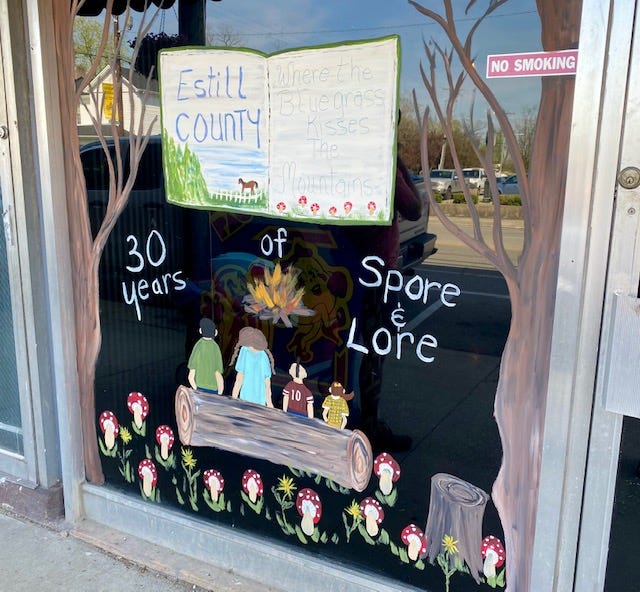 NO SMOKING
Estill
COUNTY
Where the
Bluegrass
Kisses
The
Mountains
30
years
of
Spore
&
Lore
10